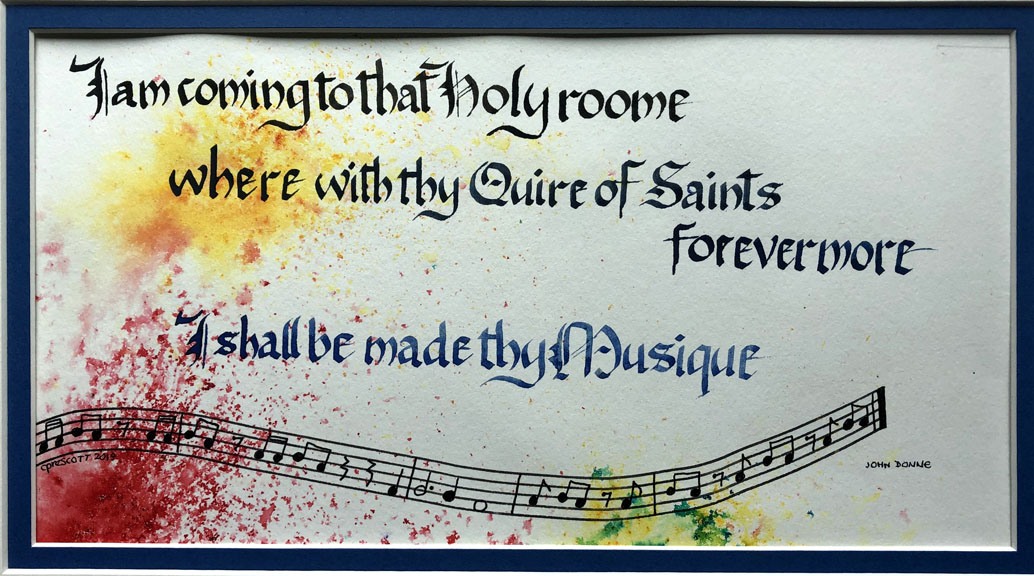 I am coming to that Holy roome
where with thy Quire of Saints
forevermore
I shall be made thy Musique
CPRESCOTT 2019
JOHN DONNE